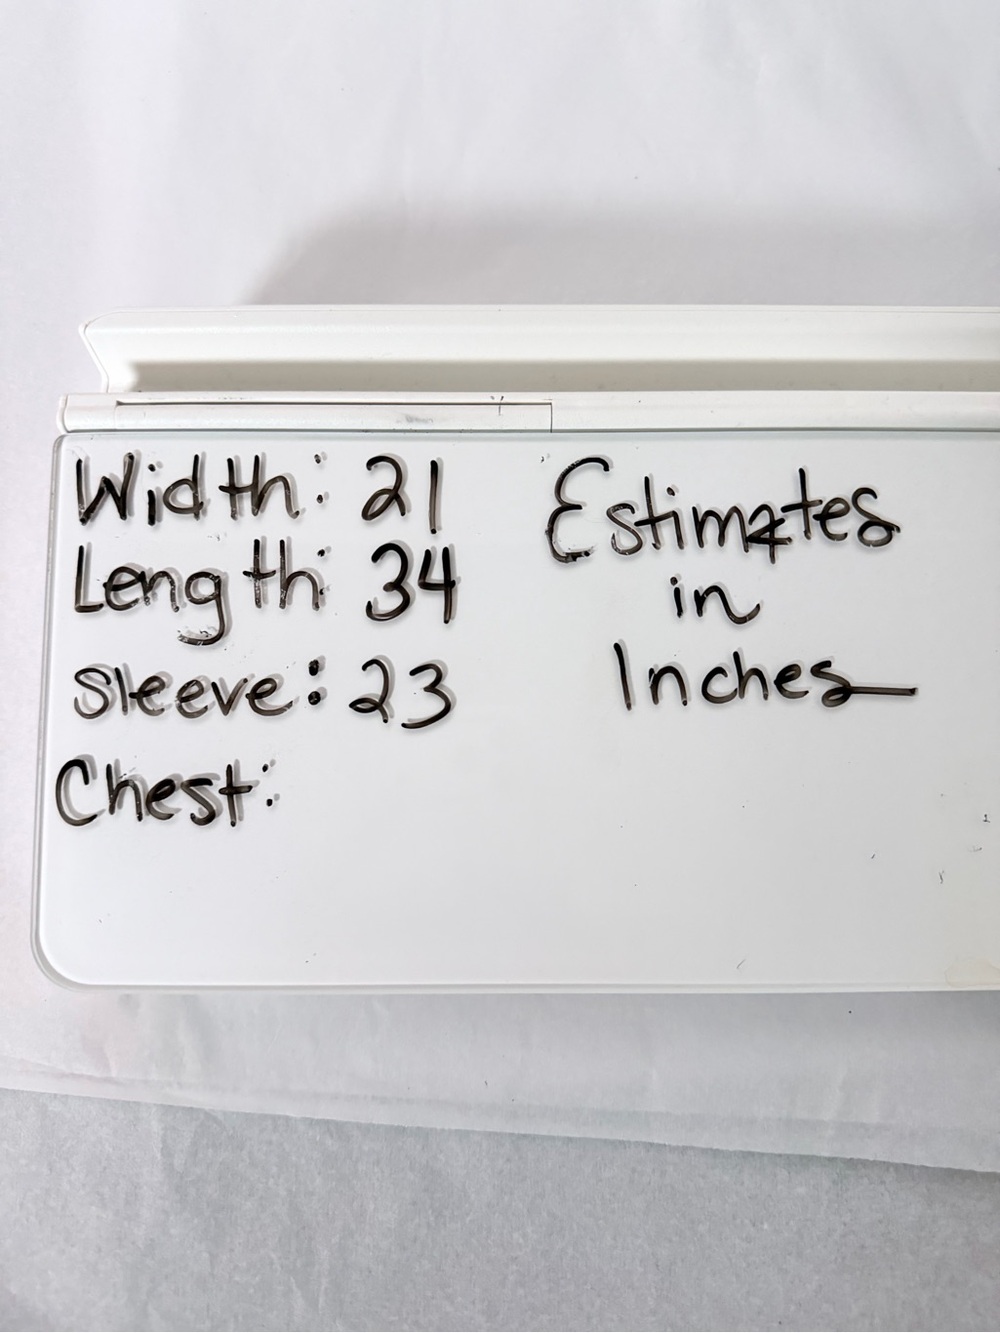 Width: 21
Length: 34
Sleeve: 23
Chest:
Estimates
in
Inches